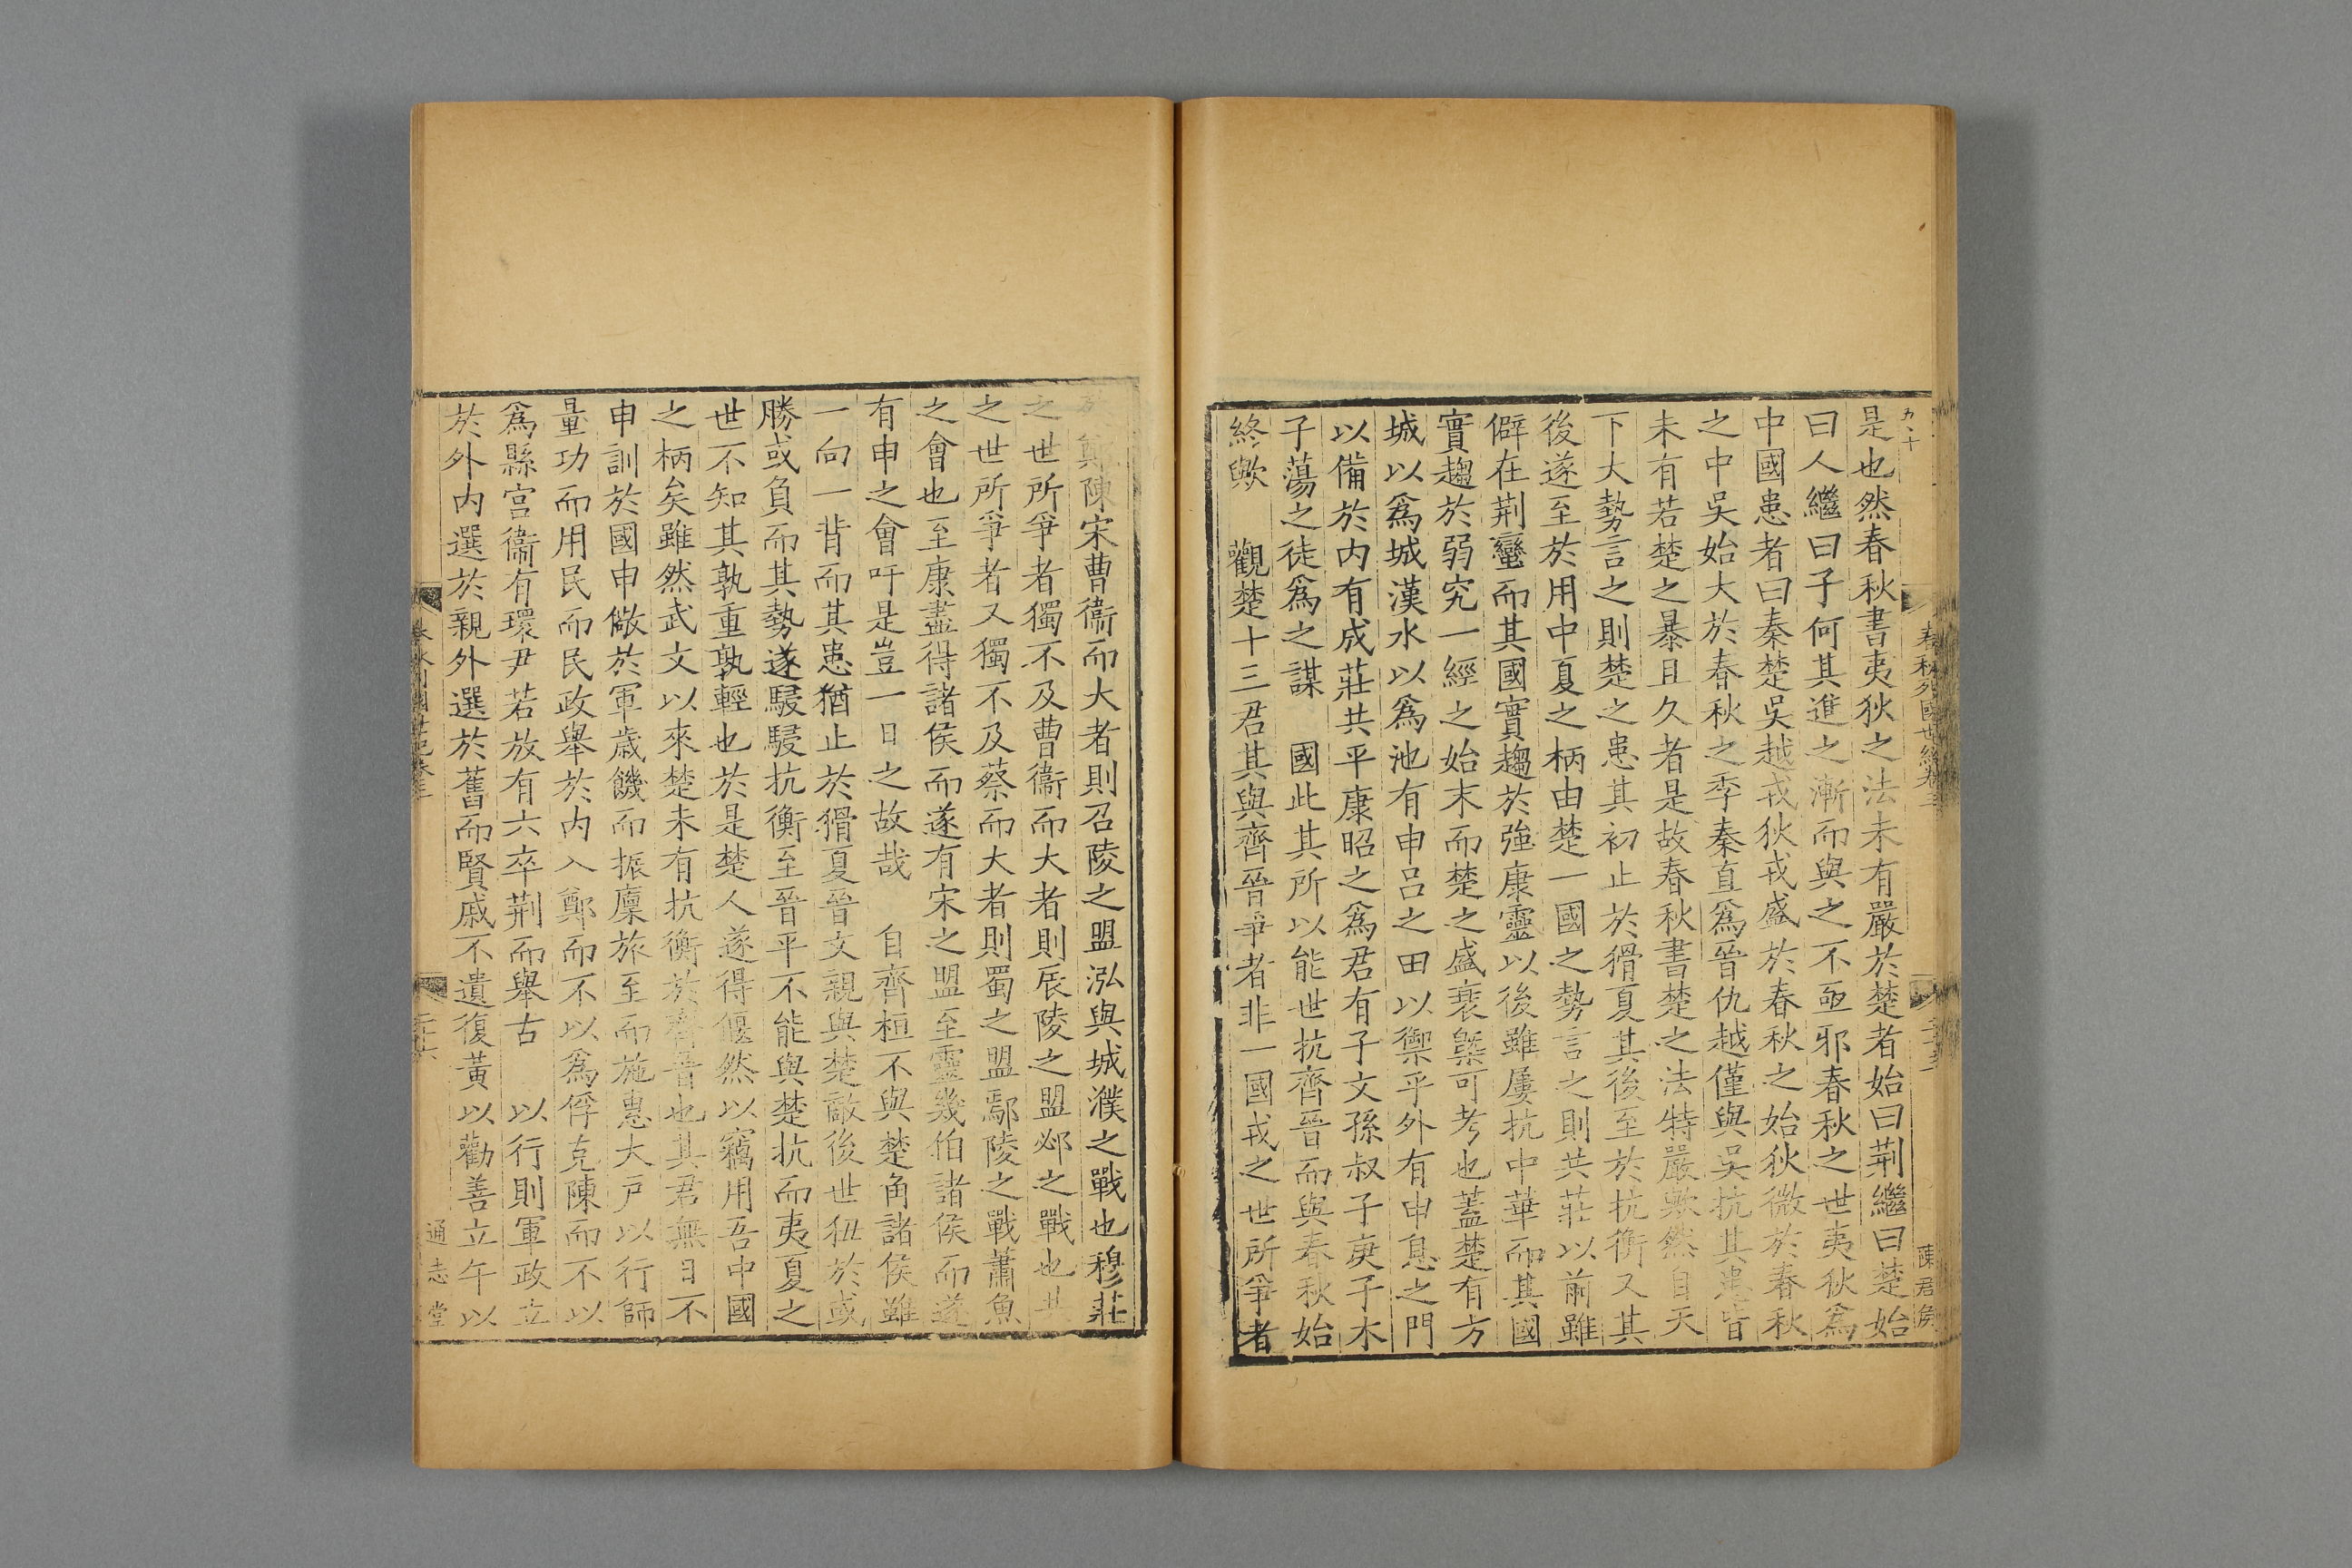 是也然春秋書夷狄之法未有嚴於楚者始曰荆繼曰楚始
曰人繼曰子何其進之漸而與之不亟邪春秋之世夷狄爲
中國患者曰秦楚吳越戎狄戎盛於春秋之始狄微於春秋
之中吳始大於春秋之季秦直爲晉仇越僅與吳抗其患皆
未有若楚之暴且久者是故春秋書楚之法特嚴歟然自天
下大勢言之則楚之患其初止於猾夏其後至於抗衡又其
後遂至於用中夏之柄由楚一國之勢言之則共莊以前雖
僻在荆蠻而其國實趨於強康靈以後雖屢抗中華而其國
實趨於弱究一經之始末而楚之盛衰槩可考也蓋楚有方
城以爲城漢水以爲池有申呂之田以禦乎外有申息之門
以備於内有成莊共平康昭之爲君有子文孫叔子庚子木
子蕩之徒爲之謀 國此其所以能世抗齊晉而與春秋始
終歟 觀楚十三君其與齊晉爭者非一國戎之世所爭者
春秋列國世紀卷三
鄭陳宋曹衞而大者則召陵之盟泓與城濮之戰也穆莊
之世所爭者獨不及曹衞而大者則辰陵之盟邲之戰也共
之世所爭者又獨不及蔡而大者則蜀之盟鄢陵之戰蕭魚
之會也至康盡得諸侯而遂有宋之盟至靈幾伯諸侯而遂
有申之會吁是豈一日之故哉 自齊桓不與楚角諸侯雖
一向一背而其患猶止於猾夏晉文親與楚敵後世狃於或
勝或負而其勢遂駸駸抗衡至晉平不能與楚抗而夷夏之
世不知其孰重孰輕也於是楚人遂得偃然以竊用吾中國
之柄矣雖然武文以來楚未有抗衡於齊晉也其君無日不
申訓於國申儆於軍歲饑而振廩旅至而施惠大戸以行師
量功而用民而民政舉於内入鄭而不以爲俘克陳而不以
爲縣宮衞有環尹若敖有六卒荆而舉古 以行則軍政立
於外内選於親外選於舊而賢戚不遺復黃以勸善立午以
通志堂